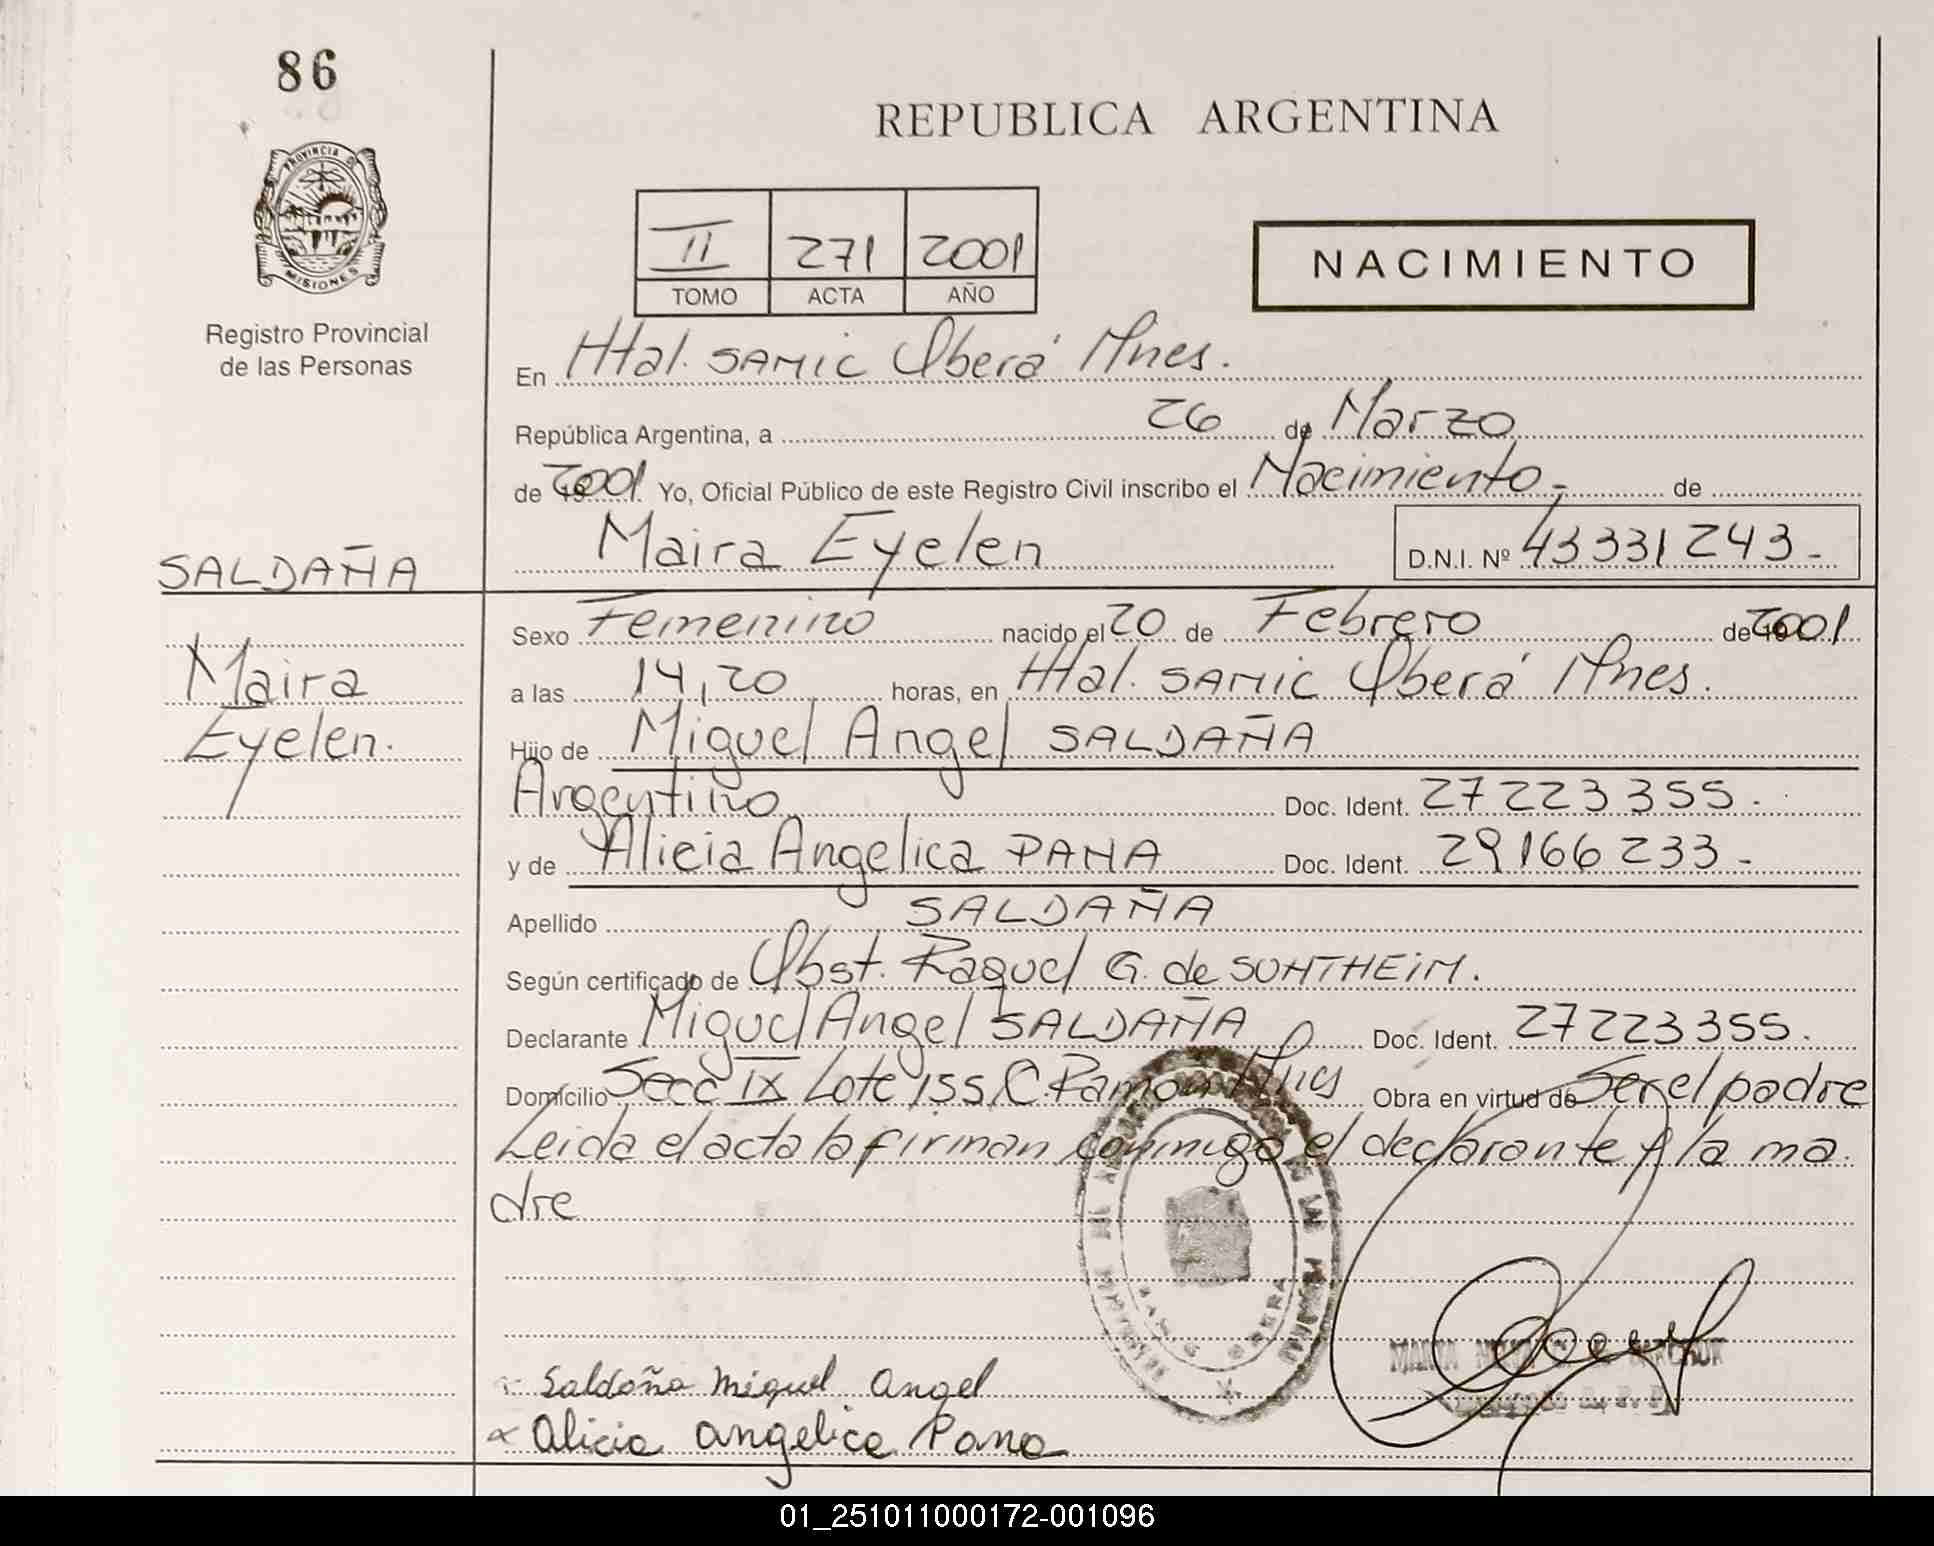 86
REPUBLICA ARGENTINA
PROVINCIA D
MISIONES
Registro Provincial
de las Personas
II 271 2001
TOMO ACTA AÑO
NACIMIENTO
En Htal. SAMIC Oberá Mnes.
República Argentina, a 26 de Marzo
de 2001 Yo, Oficial Público de este Registro Civil inscribo el Nacimiento - de
Maira Eyelen D.N.I. Nº 43331243-
SALDAÑA
Maira
Eyelen.
Sexo Femenino nacido el 20 de Febrero de 2001
a las 14,20 horas, en Htal. SAMIC Oberá Mnes.
Hijo de Miguel Angel SALDAÑA
Argentino Doc. Ident. 27223355.
y de Alicia Angelica PANA Doc. Ident. 29166233-
Apellido SALDAÑA
Según certificado de Obst. Raquel G. de SONTHEIM.
Declarante Miguel Angel SALDAÑA Doc. Ident. 27223355.
Domicilio Secc IX Lote 155 C. Ramon Mnes Obra en virtud de Ser el padre
Leida el acta la firman conmigo el declarante y la ma
dre
Saldaña Miguel Angel
Alicia Angelica Pana
OBERA
01_251011000172-001096